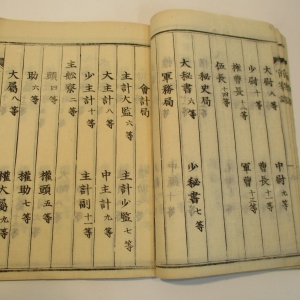 大尉 八等
中尉 九等
少尉 十等
曹長 十一等
權曹長 十二等
軍曹 十三等
伍長 十四等
秘史局
大秘書 六等
少秘書 七等
軍務局
會計局
主計大監 六等
主計少監 七等
大主計 八等
中主計 九等
少主計 十等
主計副 十一等
主舩寮 二等
頭 四等
權頭 五等
助 六等
權助 七等
大屬 八等
權大屬 九等